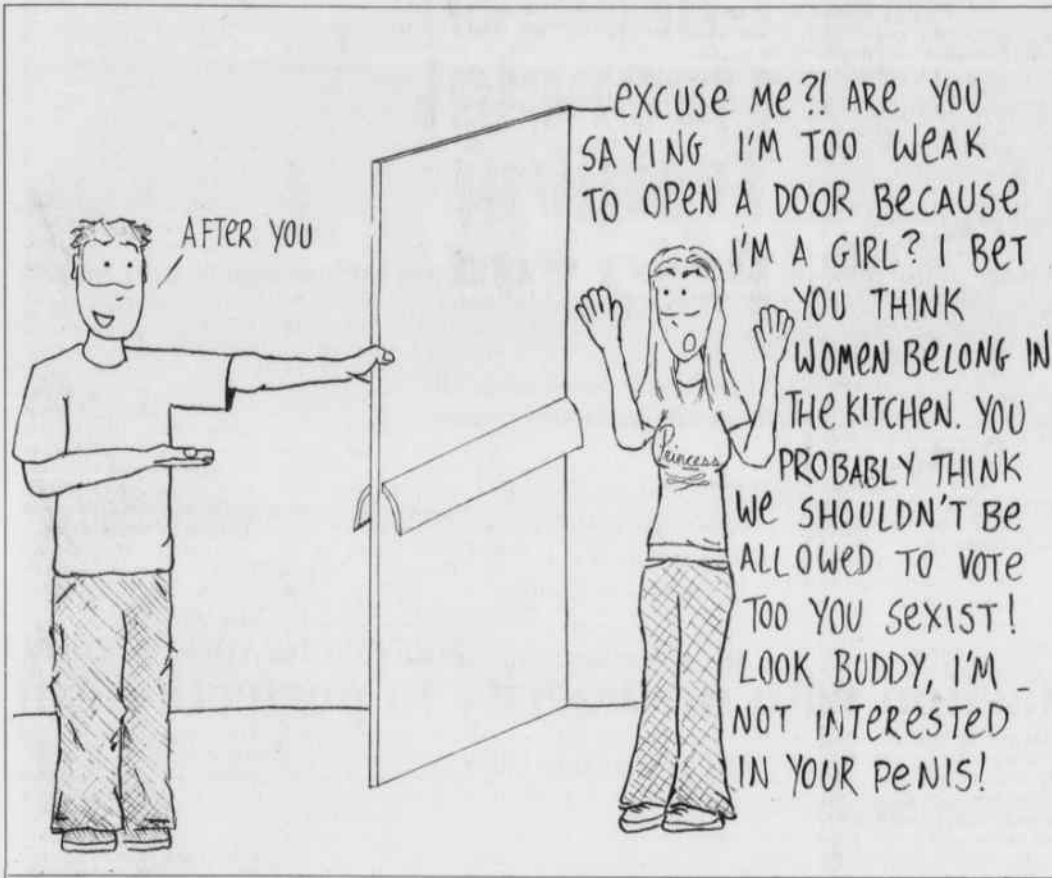 AFTER YOU
EXCUSE ME?! ARE YOU
SAYING I'M TOO WEAK
TO OPEN A DOOR BECAUSE
I'M A GIRL? I BET
YOU THINK
WOMEN BELONG IN
THE KITCHEN. YOU
PROBABLY THINK
WE SHOULDN'T BE
ALLOWED TO VOTE
TOO YOU SEXIST!
LOOK BUDDY, I'M
NOT INTERESTED
IN YOUR PENIS!
Princess